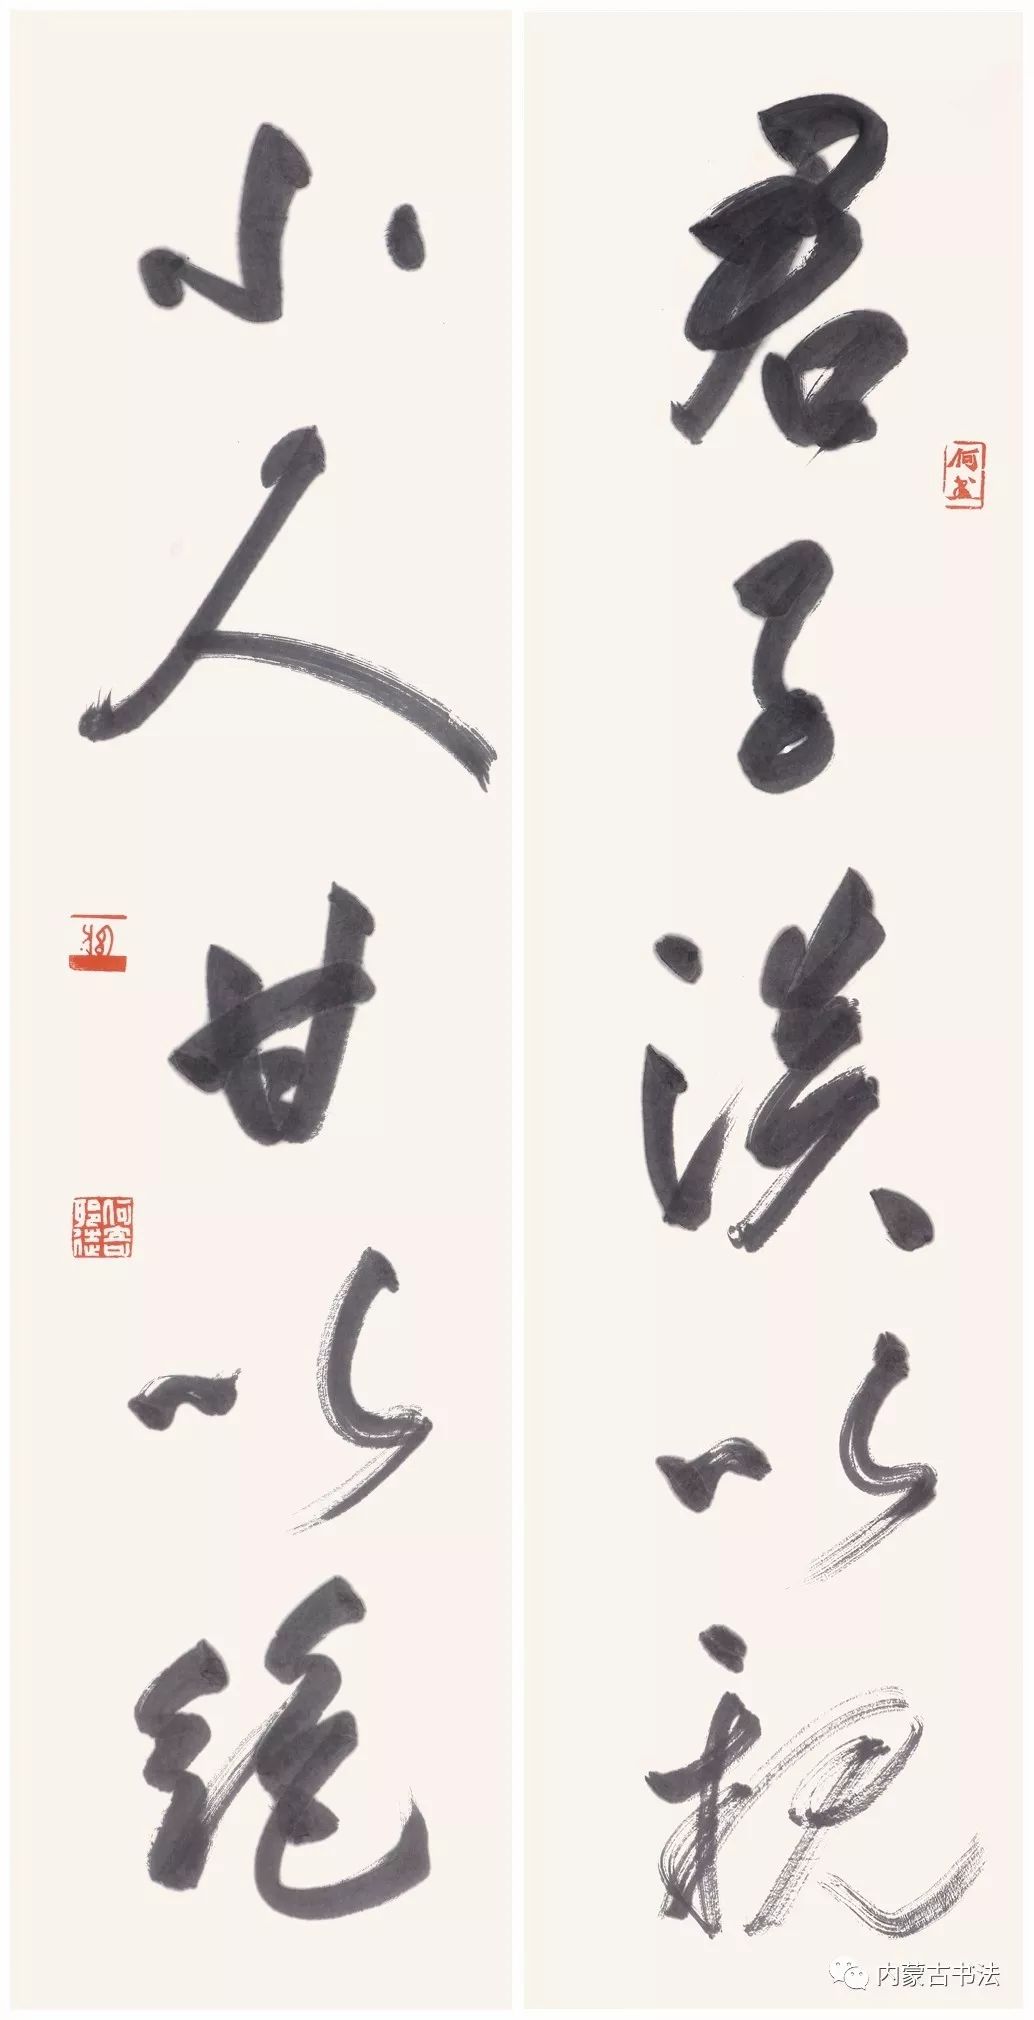 君子淡以親
小人甘以絕
何書
内蒙古书法